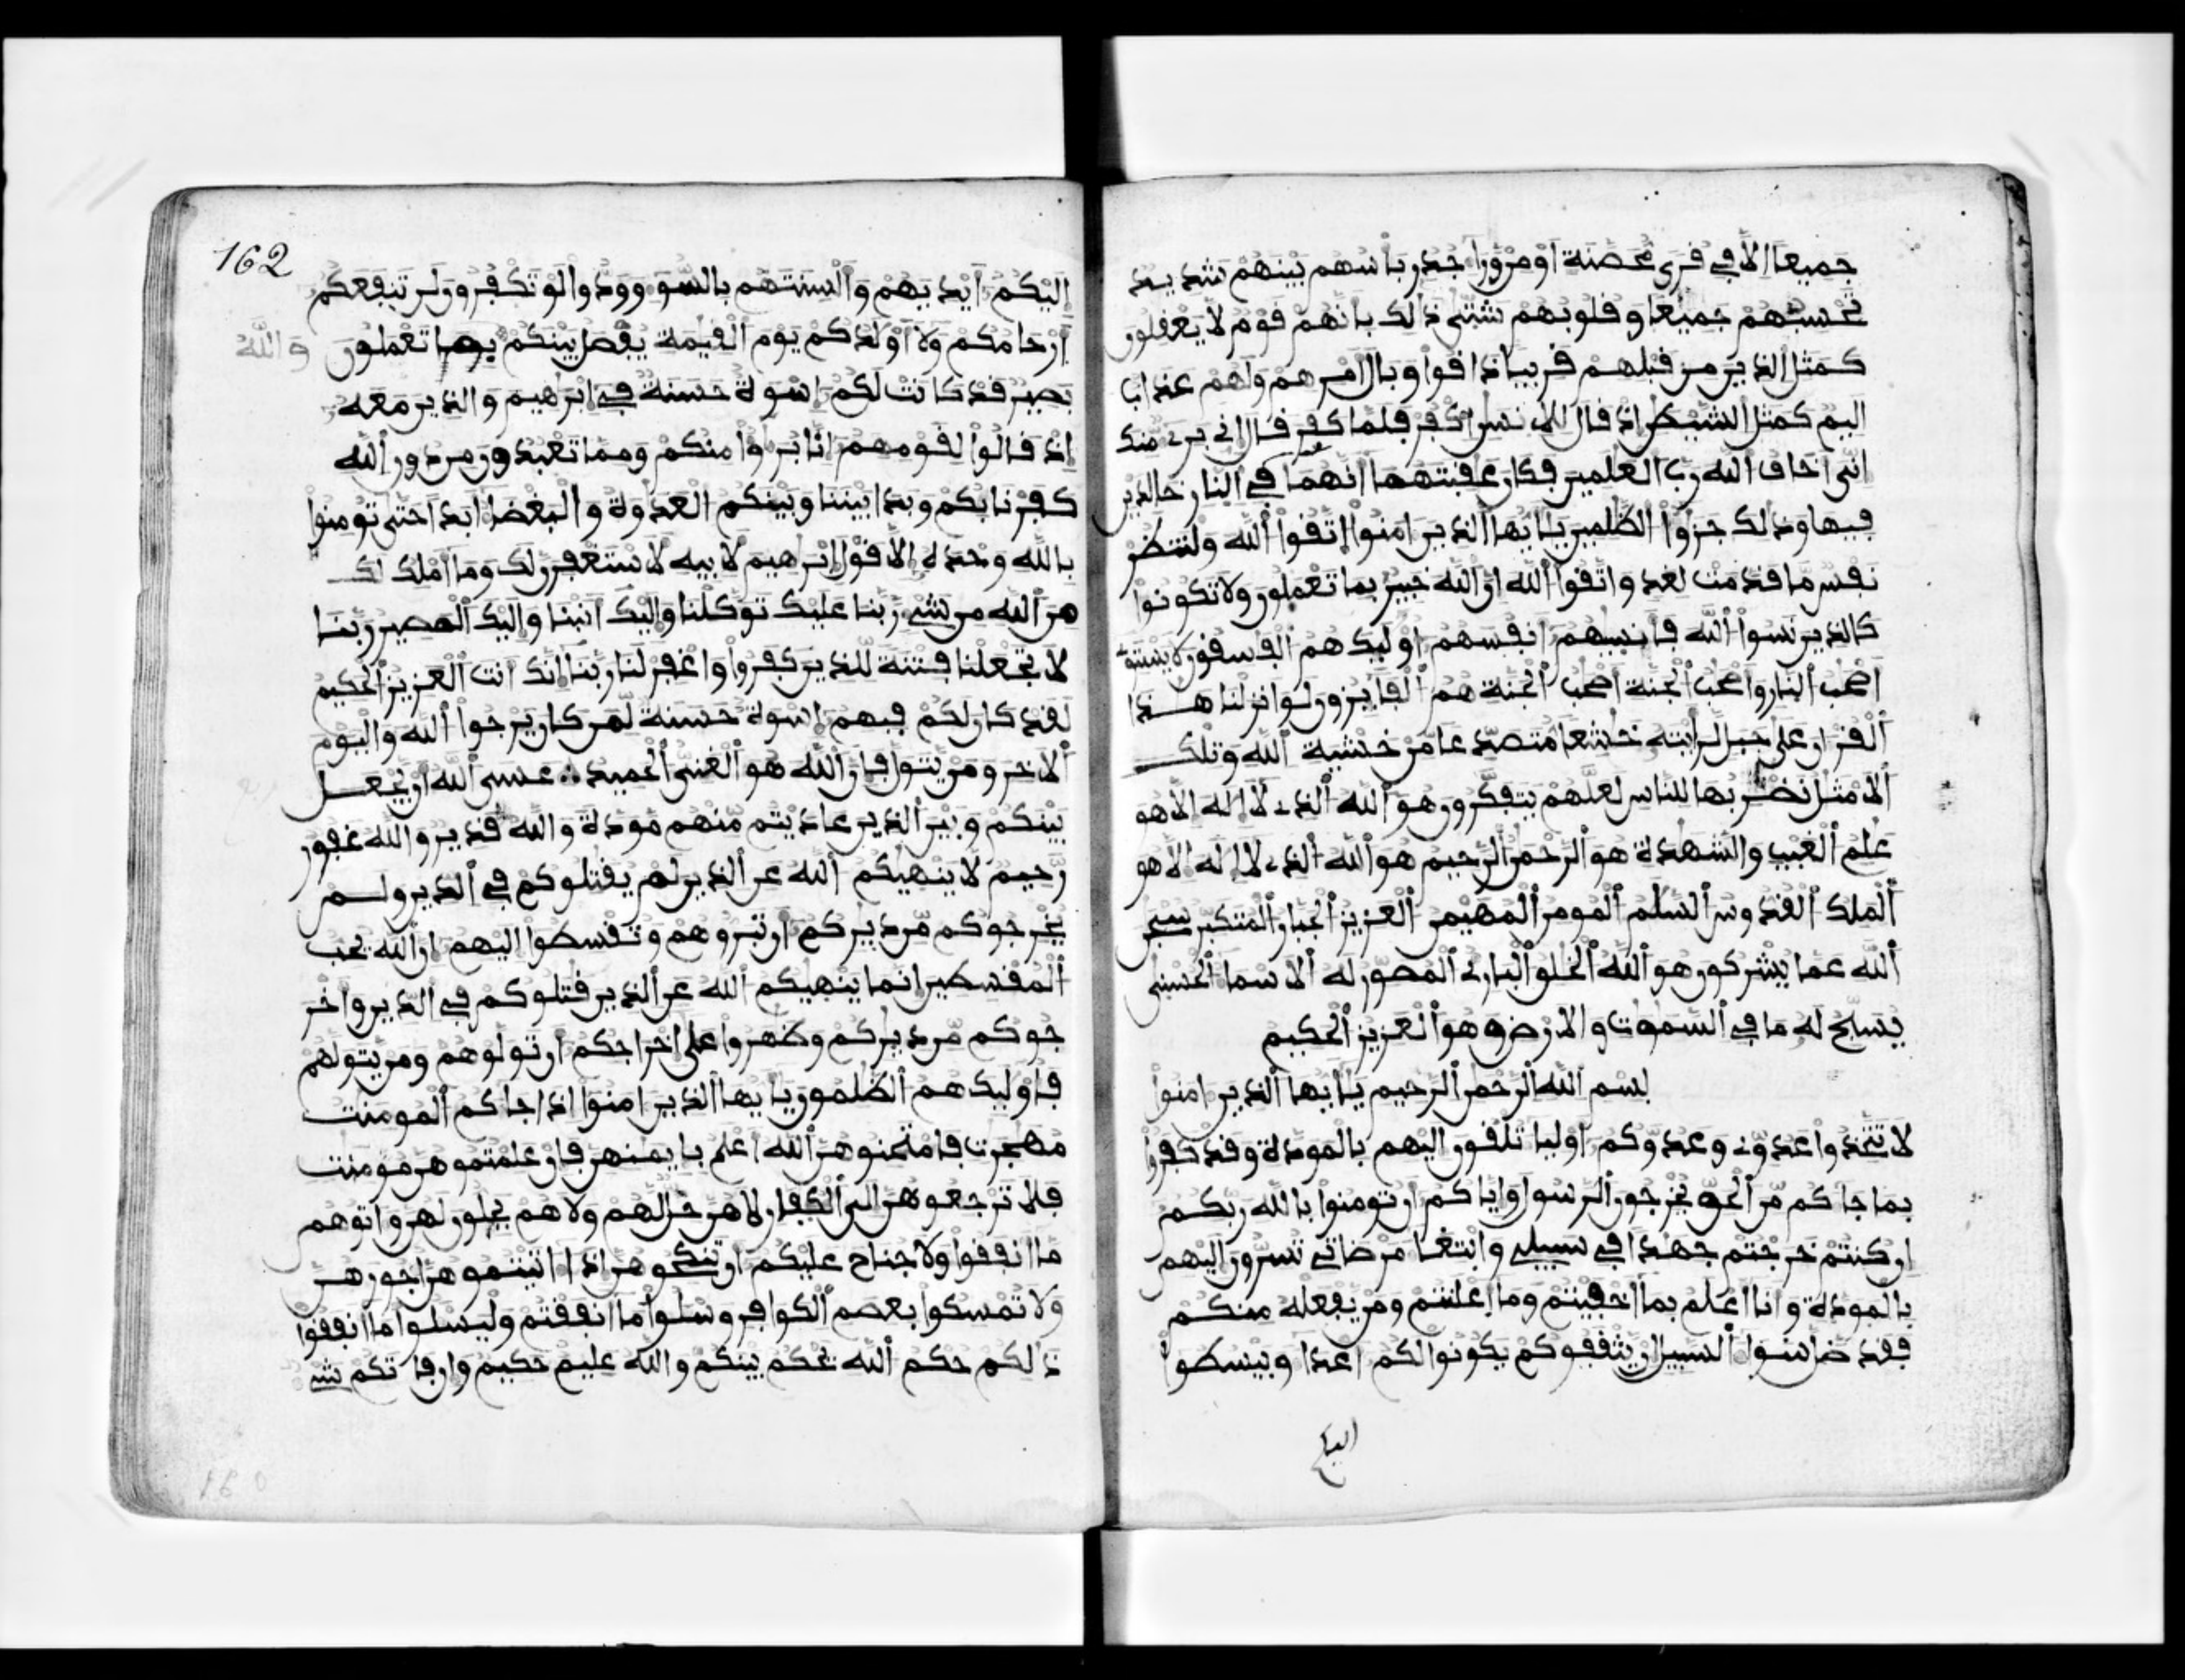 جميعا الا في قرى محصنة او من ورا جدر باسهم بينهم شديد
تحسبهم جميعا وقلوبهم شتى ذالك بانهم قوم لا يعقلون
كمثل الذين من قبلهم قريبا ذاقوا وبال امرهم ولهم عذاب
اليم كمثل الشيطن اذ قال للانسن اكفر فلما كفر قال اني بري منك
اني اخاف الله رب العلمين فكان عقبتهما انهما في النار خالدين
فيها وذلك جزوا الظلمين يايها الذين امنوا اتقوا الله ولتنظر
نفس ما قدمت لغد واتقوا الله ان الله خبير بما تعملون ولا تكونوا
كالذين نسوا الله فانسيهم انفسهم اوليك هم الفسقون لا يستوي
اصحب النار واصحب الجنة اصحب الجنة هم الفايزون لو انزلنا هذا
القران على جبل لرايته خشعا متصدعا من خشية الله وتلك
الامثل نضربها للناس لعلهم يتفكرون هو الله الذي لا اله الا هو
علم الغيب والشهدة هو الرحمن الرحيم هو الله الذي لا اله الا هو
الملك القدوس السلم المومن المهيمن العزيز الجبار المتكبر سبحن
الله عما يشركون هو الله الخلق الباري المصور له الاسما الحسنى
يسبح له ما في السموت والارض وهو العزيز الحكيم
بسم الله الرحمن الرحيم يايها الذين امنوا
لا تتخذوا عدوي وعدوكم اوليا تلقون اليهم بالمودة وقد كفروا
بما جاكم من الحق يخرجون الرسول واياكم ان تومنوا بالله ربكم
ان كنتم خرجتم جهدا في سبيلي وابتغا مرضاتي تسرون اليهم
بالمودة وانا اعلم بما اخفيتم وما اعلنتم ومن يفعله منكم
فقد ضل سوا السبيل ان يثقفوكم يكونوا لكم اعدا ويبسطوا
اليكم
162
اليكم ايديهم والسنتهم بالسو وودوا لو تكفرون لن تنفعكم
ارحامكم ولا اولدكم يوم القيمة يفصل بينكم بما تعملون والله
بصير قد كانت لكم اسوة حسنة في ابرهيم والذين معه
اذ قالوا لقومهم انا براوا منكم ومما تعبدون من دون الله
كفرنا بكم وبدا بيننا وبينكم العدوة والبغضا ابدا حتى تومنوا
بالله وحده الا قول ابرهيم لابيه لاستغفرن لك وما املك لك
من الله من شي ربنا عليك توكلنا واليك انبنا واليك المصير ربنا
لا تجعلنا فتنة للذين كفروا واغفر لنا ربنا انك انت العزيز الحكيم
لقد كان لكم فيهم اسوة حسنة لمن كان يرجوا الله واليوم
الاخر ومن يتول فان الله هو الغني الحميد عسى الله ان يجعل
بينكم وبين الذين عاديتم منهم مودة والله قدير والله غفور
رحيم لا ينهيكم الله عن الذين لم يقتلوكم في الدين ولم
يخرجوكم من ديركم ان تبروهم وتقسطوا اليهم ان الله يحب
المقسطين انما ينهيكم الله عن الذين قتلوكم في الدين واخر
جوكم من ديركم وظهروا على اخراجكم ان تولوهم ومن يتولهم
فاوليك هم الظلمون يايها الذين امنوا اذا جاكم المومنت
مهجرت فامتحنوهن الله اعلم بايمنهن فان علمتموهن مومنت
فلا ترجعوهن الى الكفار لا هن حل لهم ولا هم يحلون لهن واتوهم
ما انفقوا ولا جناح عليكم ان تنكحوهن اذا اتيتموهن اجورهن
ولا تمسكوا بعصم الكوافر وسلوا ما انفقتم وليسلوا ما انفقوا
ذالكم حكم الله يحكم بينكم والله عليم حكيم وان فاتكم شي